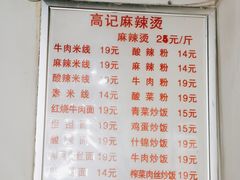 高记麻辣烫
麻辣烫 25元/斤
牛肉米线 19元 酸辣粉 14元
麻辣米线 19元 麻辣粉 14元
酸辣米线 19元 牛肉粉 19元
素米线 14元 酸菜粉 19元
红烧牛肉面 19元 青菜炒饭 15元
面 19元 鸡蛋炒饭 15元
面 19元 什锦炒饭 19元
面 19元 牛肉炒饭 19元
面 14元 榨菜肉丝炒饭 19元